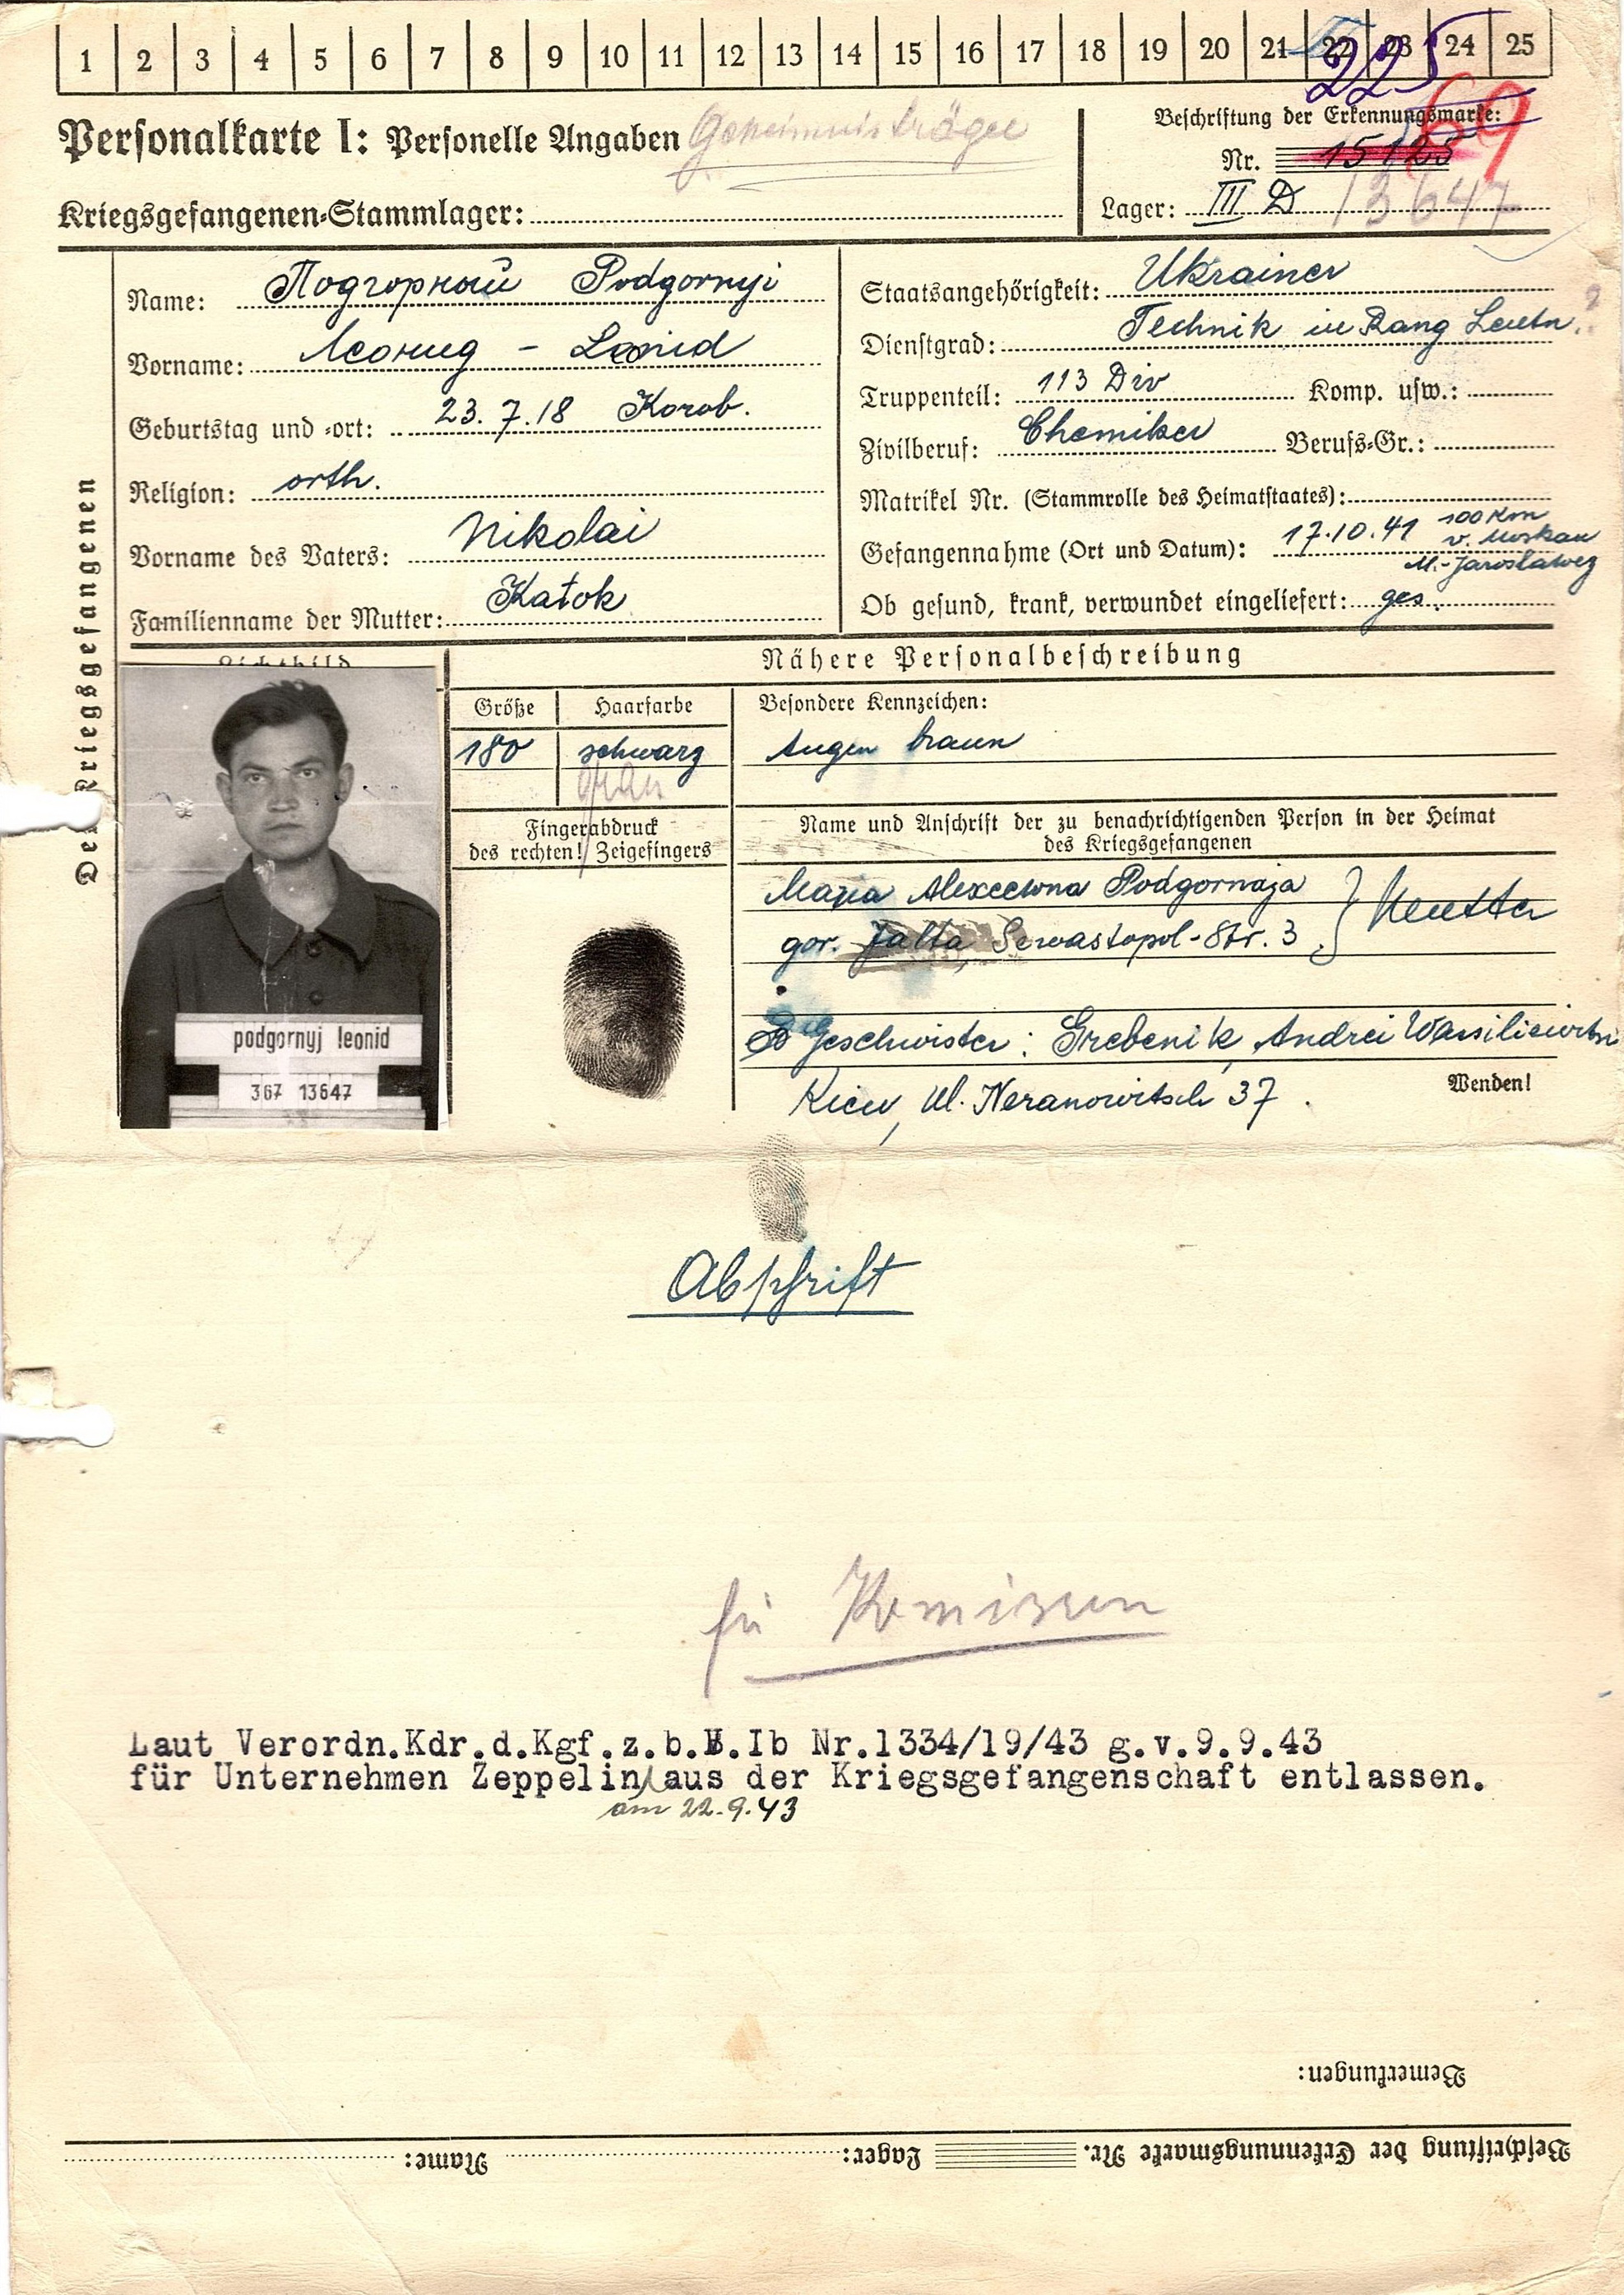 1 2 3 4 5 6 7 8 9 10 11 12 13 14 15 16 17 18 19 20 21 22 23 24 25
225
Personalkarte I: Personelle Angaben Geheimnisträger
Beschriftung der Erkennungsmarke:
69
Nr. 15125
Kriegsgefangenen-Stammlager:
Lager: III D 13647
Name: Подгорный Podgornyi
Vorname: Леонид - Leonid
Geburtstag und -ort: 23.7.18 Korob.
Religion: orth.
Vorname des Vaters: Nikolai
Familienname der Mutter: Katok
Staatsangehörigkeit: Ukrainer
Dienstgrad: Technik in Rang Leutn.
Truppenteil: 113 Div Komp. usw.:
Zivilberuf: Chemiker Berufs-Gr.:
Matrikel Nr. (Stammrolle des Heimatstaates):
Gefangennahme (Ort und Datum): 17.10.41 100 Km
v. Moskau
M.-Jaroslawez
Ob gesund, krank, verwundet eingeliefert: ges.
Der Kriegsgefangenen
Lichtbild
podgornyj leonid
367 13647
Nähere Personalbeschreibung
Größe Haarfarbe Besondere Kennzeichen:
180 schwarz Augen braun
grau
Fingerabdruck
des rechten! Zeigefingers
Name und Anschrift der zu benachrichtigenden Person in der Heimat
des Kriegsgefangenen
Maria Alexeewna Podgornaja } Mutter
gor. Jalta, Sewastopol-Str. 3
Geschwister: Grebenik, Andrei Wassiliewitsch
Kiew, Ul. Neranowitsch 37.
Wenden!
Abschrift
für
Laut Verordn.Kdr.d.Kgf.z.b.V.Ib Nr.1334/19/43 g.v.9.9.43
für Unternehmen Zeppelin aus der Kriegsgefangenschaft entlassen.
am 22.9.43
Bemerkungen:
Beschriftung der Erkennungsmarke Nr. Lager: Name: